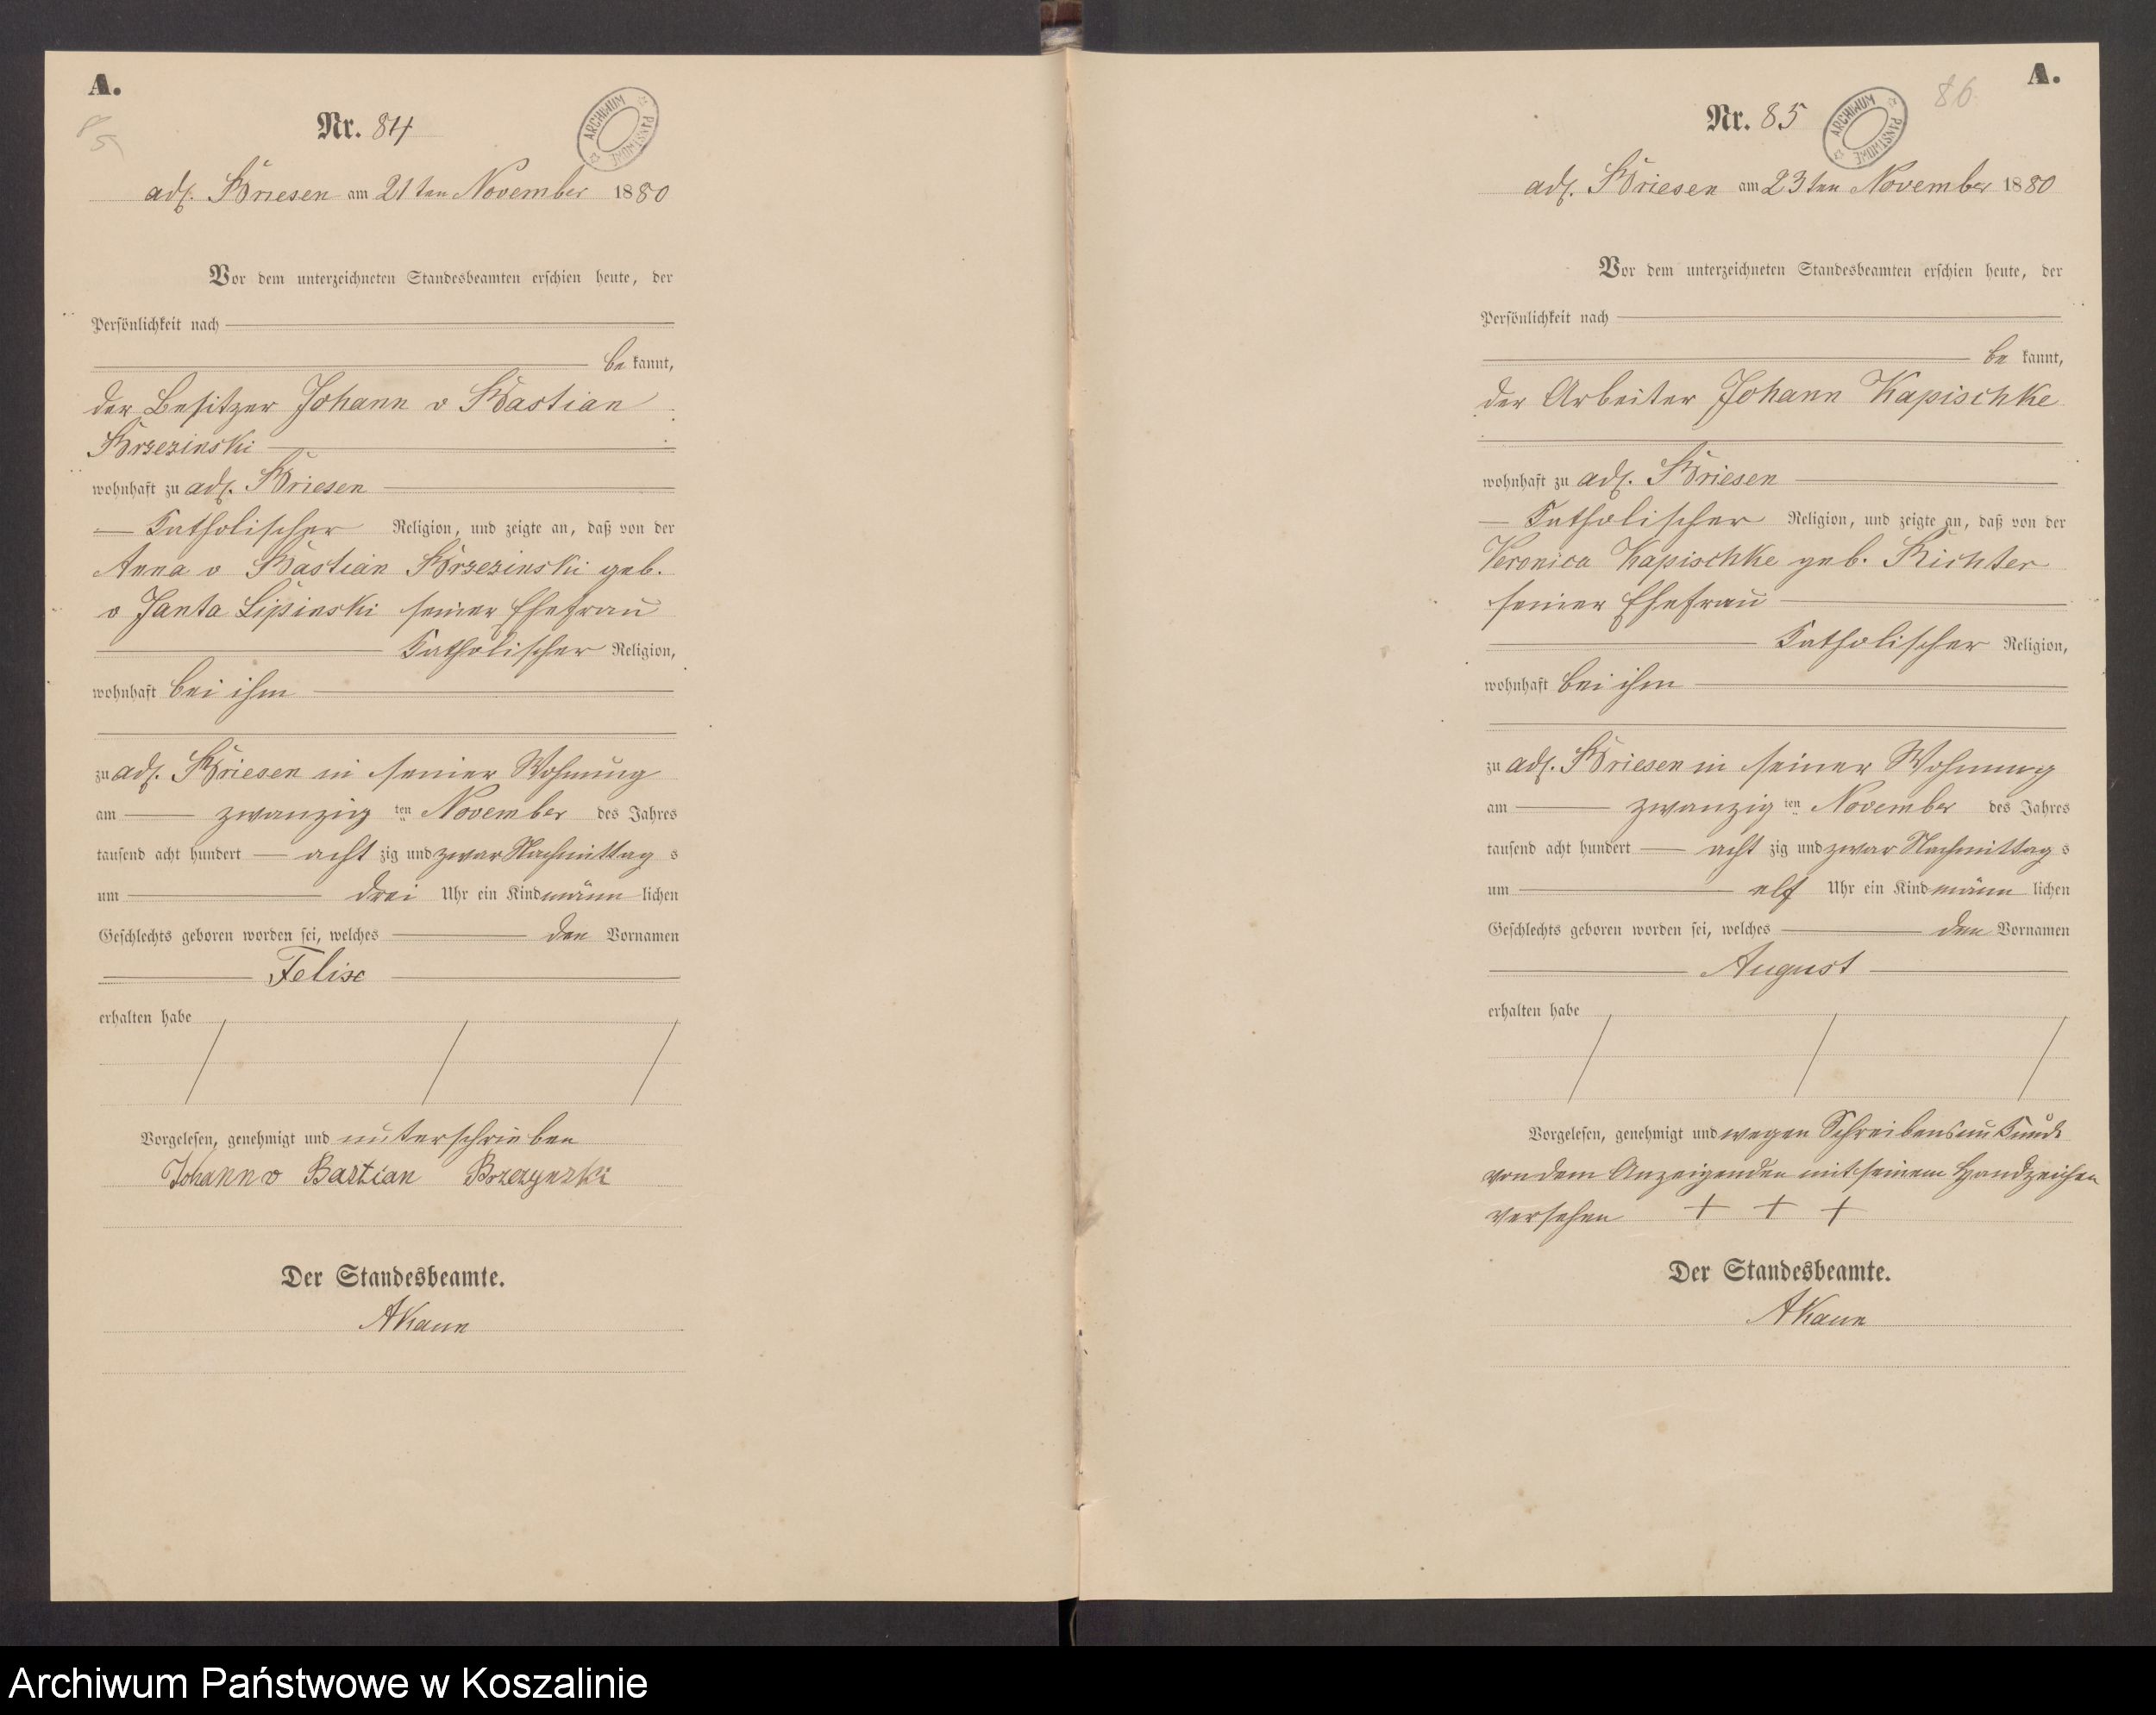 A.
85
Nr. 84
ARCHIWUM PAŃSTWOWE
adl. Briesen am 21ten November 1880
Vor dem unterzeichneten Standesbeamten erschien heute, der
Persönlichkeit nach
be kannt,
der Besitzer Johann v Bastian
Brzezinski
wohnhaft zu adl. Briesen
Katholischer Religion, und zeigte an, daß von der
Anna v Bastian Brzezinski geb.
v Janta Lipinski seiner Ehefrau
Katholischer Religion,
wohnhaft bei ihm
zu adl. Briesen in seiner Wohnung
am zwanzig ten November des Jahres
tausend acht hundert acht zig und zwar Nachmittag s
um drei Uhr ein Kind männ lichen
Geschlechts geboren worden sei, welches den Vornamen
Felix
erhalten habe
Vorgelesen, genehmigt und unterschrieben
Johann v Bastian Brzezynski
Der Standesbeamte.
AKann
A.
86
Nr. 85
ARCHIWUM PAŃSTWOWE
adl. Briesen am 23ten November 1880
Vor dem unterzeichneten Standesbeamten erschien heute, der
Persönlichkeit nach
be kannt,
der Arbeiter Johann Kapischke
wohnhaft zu adl. Briesen
Katholischer Religion, und zeigte an, daß von der
Veronica Kapischke geb. Richter
seiner Ehefrau
Katholischer Religion,
wohnhaft bei ihm
zu adl. Briesen in seiner Wohnung
am zwanzig ten November des Jahres
tausend acht hundert acht zig und zwar Nachmittag s
um elf Uhr ein Kind männ lichen
Geschlechts geboren worden sei, welches den Vornamen
August
erhalten habe
Vorgelesen, genehmigt und wegen Schreibensunkunde
von dem Anzeigenden mit seinem Handzeichen
versehen + + +
Der Standesbeamte.
AKann
Archiwum Państwowe w Koszalinie